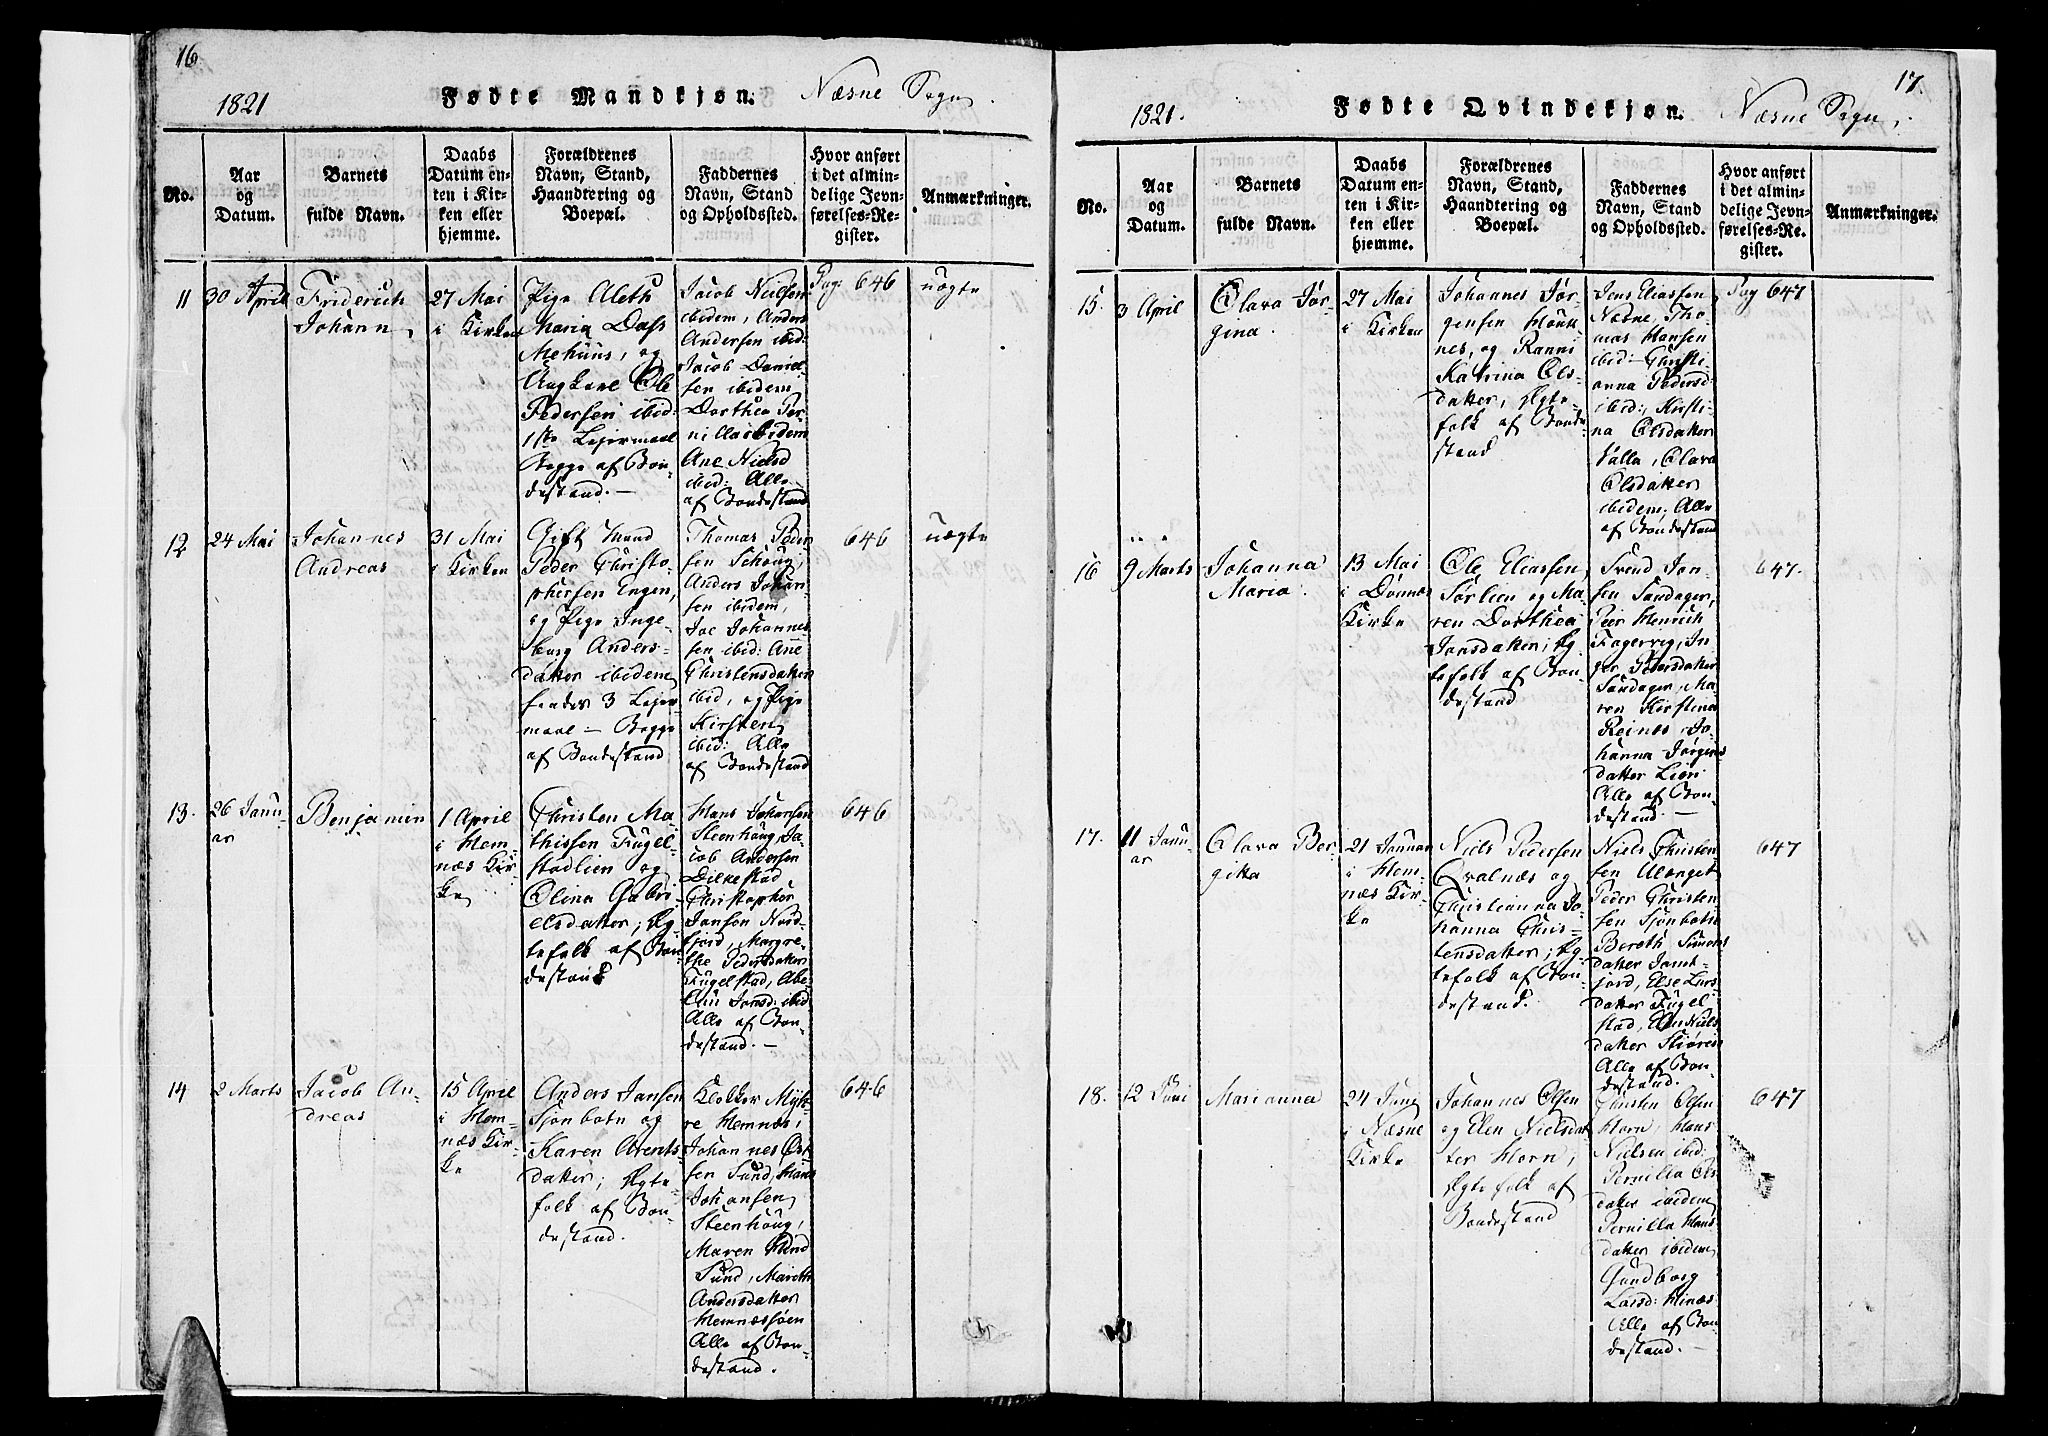 16
1821
Fødte Mandkjøn.
Næsne Sogn.
No.
Aar
og
Datum.
Barnets
fulde Navn.
Daabs
Datum en-
ten i Kir-
ken eller
hjemme.
Forældrenes
Navn, Stand,
Haandtering og
Boepæl.
Faddernes
Navn, Stand
og Opholdssted.
Hvor anført
i det almin-
delige Jevn-
førelses-Re-
gister.
Anmærkninger.
11
30 April
Friderich
Johann
27 Mai
i Kirken
Pige Aleth
Maria Dass
Mehuus, og
Ungkarl Ole
Pedersen ibid:
1ste Lejermaal
Begge af Bon-
destand.
Jacob Nielsen
ibidem, Anders
Andersen ibid:
Jacob Daniel-
sen ibidem,
Dorthea Per-
nilla ibidem
Ane Nielsd
ibid: Alle
af Bondestand
Pag: 646
uægte
12
24 Mai
Johannes
Andreas
31 Mai
i Kirken
Gift Mand
Peder Christo-
phersen Engen,
og Pige Inge-
borg Anders-
datter ibidem
3 Lejer-
maal – Begge
af Bondestand
Thomas Peder
sen Schoug,
Anders Johan-
sen ibidem,
Joe Johannes
sen ibid: Ane
Christensdatter
ibid, og Pige
Kirsten
ibid: Alle
af Bondestand
646
uægte
13.
26 Janu-
ar
Benjamin
1 April
i Hem-
næs Kir-
ke
Christen Ma-
thissen Fugel-
stadlien og
Olina Gabri-
elsdatter, Æg-
tefolk af Bon-
destand
Hans Johansen
Steenhoug, Ja-
cob Andersen
Dilkestad
Christopher
Jansen Nord-
fjord, Margre-
the Pedersdatter
Fugelstad, Abe-
Jansd: ibid
Alle af Bon-
destand. –
646
14
2 Marts
Jacob An-
dreas
15 April
i Hem-
næs Kir-
ke
Anders Jansen
Sjonbotn og
Karen Arents-
datter, Ægte-
folk af Bon-
destand.
Klokker
Hemnæs,
Johannes
sen Sund, Hans
Johansen
Steenhoug,
Maren
Sund, Mareth
Andersdatter
Hemnæssøen
Alle af Bon-
destand.
646
17.
1821.
Fødte Qvindekjøn.
Næsne Sogn.
No.
Aar
og
Datum.
Barnets
fulde Navn.
Daabs
Datum en-
ten i Kir-
ken eller
hjemme.
Forældrenes
Navn, Stand,
Haandtering og
Boepæl.
Faddernes
Navn, Stand
og Opholdssted.
Hvor anført
i det almin-
delige Jevn-
førelses-Re-
gister.
Anmærkninger.
15.
3 April
Olava Jør-
gina.
27 Mai
i Kirken
Johannes Jør-
gensen
nes, og Ranni
Katrina Ols-
datter, Ægte-
folk af Bonde-
stand
Jens Eliassen
Næsne, Tho-
mas Hansen
ibid: Christi-
anna Pedersd:
ibid:, Kirsti-
na Olsdatter
Valla, Olava
Olsdatter
ibidem, Alle
af Bondestand
Pag 647
16
9 Marts
Johanna
Maria.
13 Mai
i Dønnæs
Kirke
Ole Eliassen
Sørlien og Ma-
ren Dorthea
Jansdatter, Æg-
tefolk af Bon-
destand
Svend Jan-
sen Sandager,
Peer Henrich
Fagervig, In-
ger Pedersdatter
Sandager, Ma-
ren Kirstina
Reinæs, Jo-
hanna Jørgens
datter Lien
Alle af Bon-
destand. –
647.
17.
11 Janu-
ar
Olava Ber-
gitta
21 Januar
i Hem-
næs Kir-
ke
Niels Pedersen
Qvalnæs og
Christianna Jo-
hanna Chris-
tensdatter, Æg-
tefolk af Bon-
destand.
Niels Christen-
sen Ulænget
Peder Christen-
sen Sjonbotn
Bereth Simons
datter Jamt-
fjord, Else Lars-
datter Fugel
stad, Elen Niels
datter
Alle af Bon-
destand.
647
18.
12 Juni
Marianna
24 Juni
i Næsne
Kirke
Johannes Olsen
og Elen Nielsdat
ter Horn,
Ægtefolk af
Bondestand
Christen Olsen
Horn, Hans
Nielsen ibid:
Pernilla Ols-
datter ibidem
Pernilla Hans
datter ibidem
Gundborg
Larsd: Hinæs
Alle af Bon-
destand. –
647